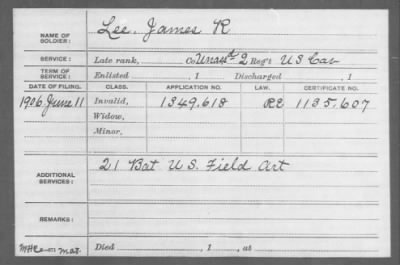 NAME OF SOLDIER: Lee, James R
SERVICE: Late rank, Co Unassd 2 Reg't U S Cav
TERM OF SERVICE: Enlisted , 1 Discharged , 1
DATE OF FILING. CLASS. APPLICATION NO. LAW. CERTIFICATE NO.
1906 June 11 Invalid, 1349.618 1135.607
Widow,
Minor,
ADDITIONAL SERVICES: 21 Bat U.S. Field Art
REMARKS:
Died , 1 , at